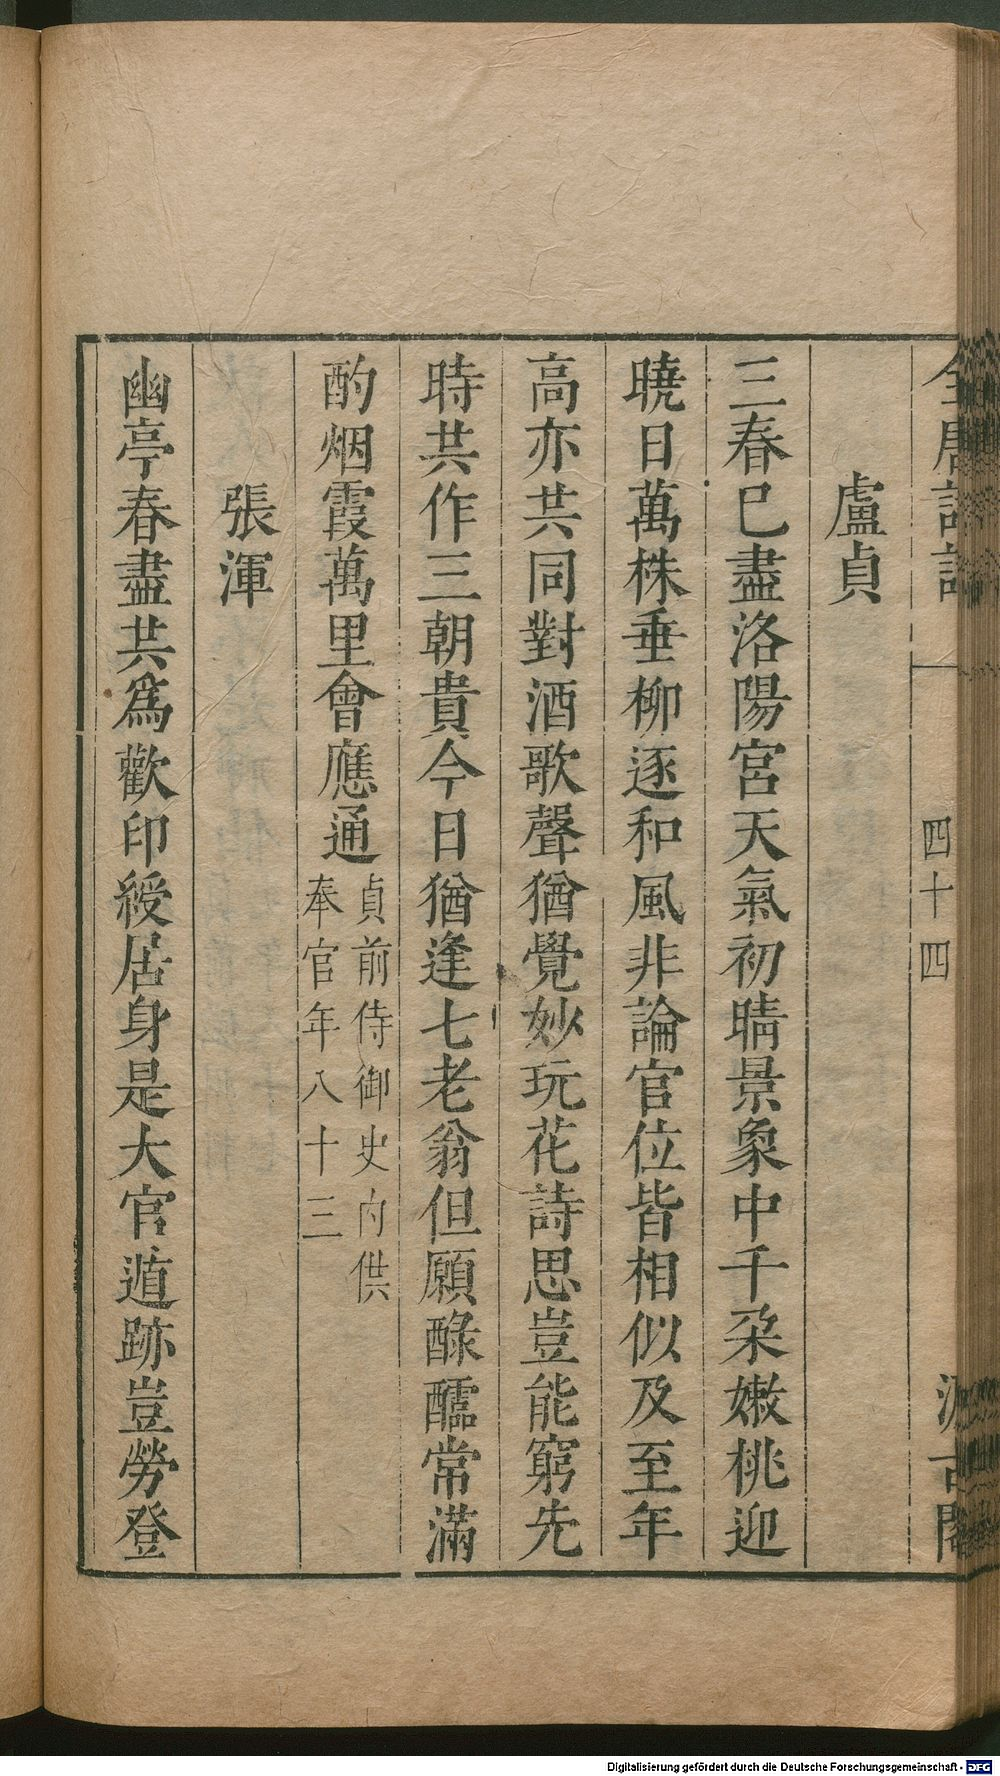 全唐詩話
四十四
汲古閣
盧貞
三春巳盡洛陽宮天氣初晴景象中千朶嫩桃迎
曉日萬株垂柳逐和風非論官位皆相似及至年
高亦共同對酒歌聲猶覺妙玩花詩思豈能窮先
時共作三朝貴今日猶逢七老翁但願醁醽常滿
酌烟霞萬里會應通貞前侍御史内供
奉官年八十三
張渾
幽亭春盡共爲歡印綬居身是大官遁跡豈勞登
Digitalisierung gefördert durch die Deutsche Forschungsgemeinschaft - DFG